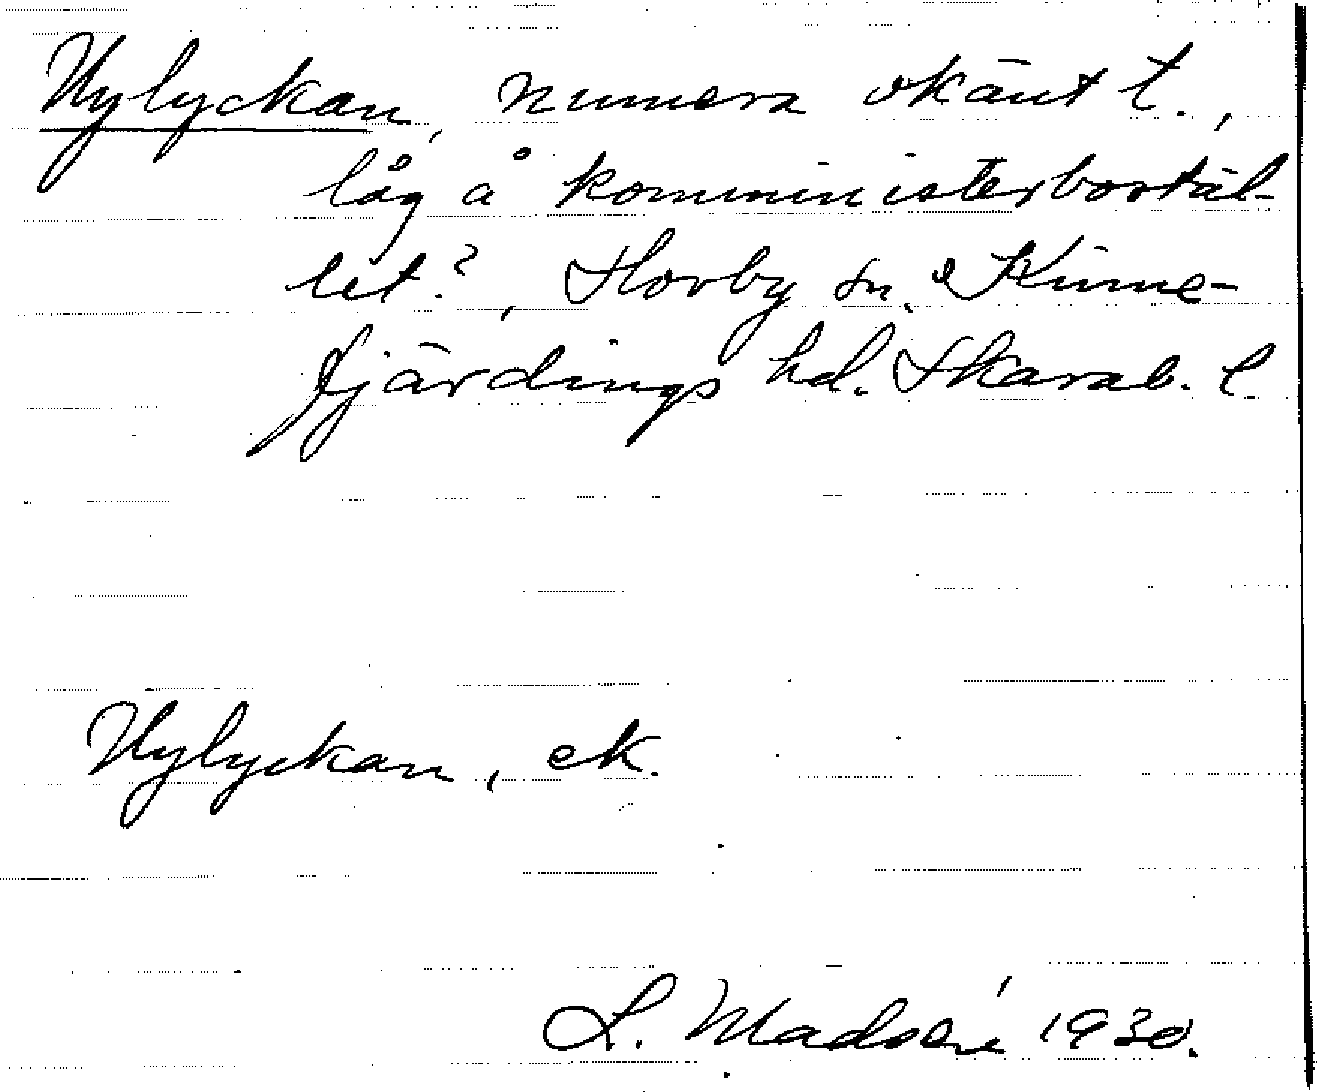 Nylyckan, numera okänt t.,
låg å komministerbostäl-
let?, Hovby sn. Kinne-
fjärdings hd. Skarab. l
Nylyckan, ek.
L. Madsén 1930.